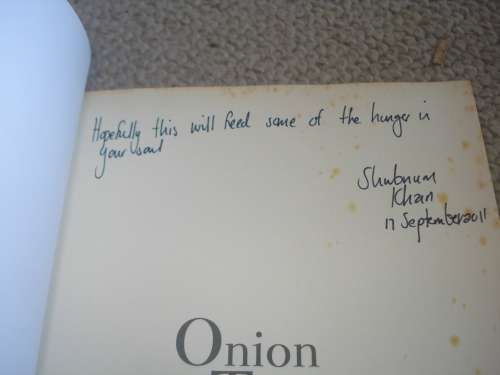 Hopefully this will feed some of the hunger in
your soul
Shubnum
Khan
17 September 2011
Onion
T